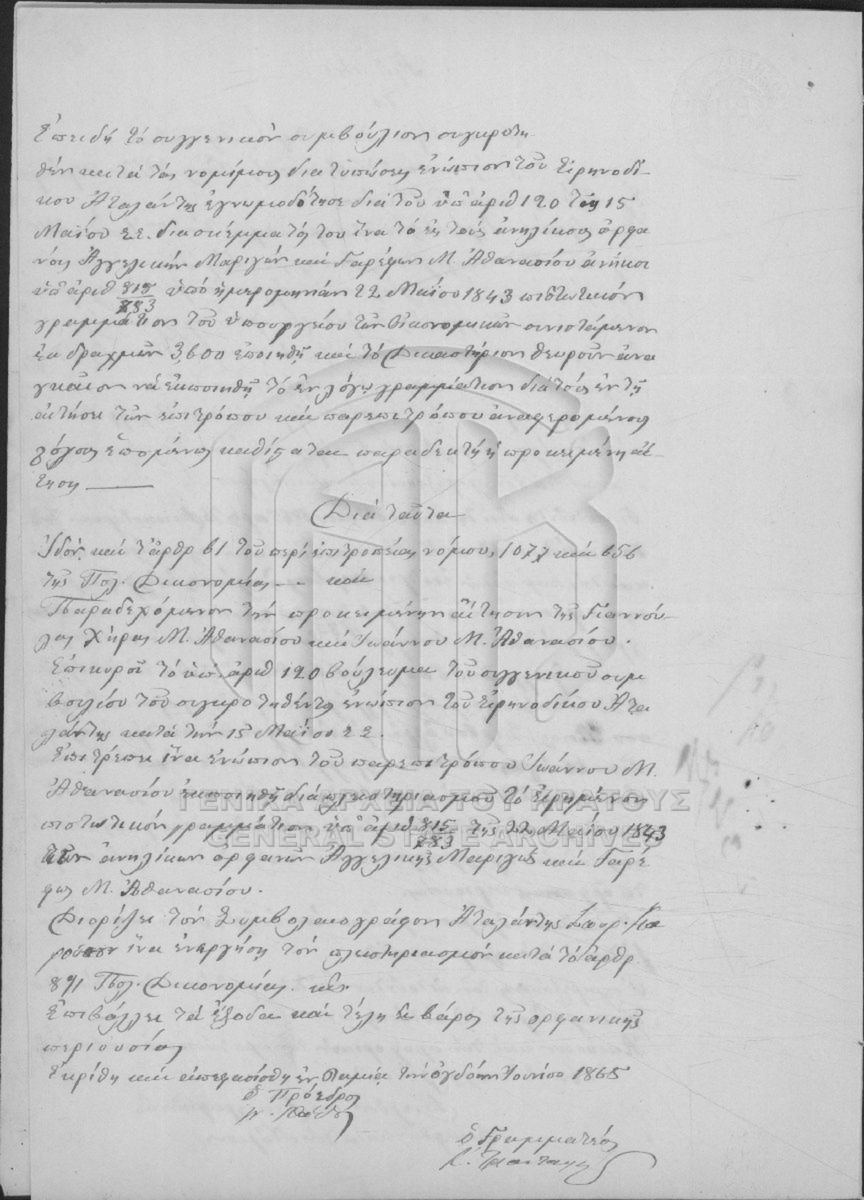 Ἐπειδὴ τὸ συγγενικὸν συμβούλιον συγκροτη
θὲν κατὰ τὰς νομίμους διατυπώσεις ἐνώπιον τοῦ Εἰρηνοδί-
κου Ἀταλάντης ἐγνωμοδότησε διὰ τοῦ ὑπ' ἀριθ 120 τῆς 15
Μαΐου ἔ.ἔ. διασκέμματός του ἵνα τὸ εἰς τοὺς ἀνηλίκους ὀρφα
νοὺς Ἀγγελικὴν Μαριγὼν καὶ Γαρέφων Μ. Ἀθανασίου ἀνῆκον
ὑπ' ἀριθ 815/783 ὑπὸ ἡμερομηνίαν 22 Μαΐου 1843 πιστωτικὸν
γραμμάτιον τοῦ ὑπουργείου τῶν Οἰκονομικῶν συνιστάμενον
ἐκ δραχμῶν 3,600 ἐποιηθῇ καὶ τὸ Δικαστήριον θεωροῦν ἀνα
γκαῖον νὰ ἐκποιηθῇ τὸ ἐν λόγῳ γραμμάτιον διὰ τοὺς ἐν τῇ
αἰτήσει τῶν ἐπιτρόπου καὶ παρεπιτρόπου ἀναφερομένους
λόγους ἑπομένως καθίσταται παραδεκτὴ ἡ προκειμένη αἴ-
τησις
Διὰ ταῦτα
Ἰδὸν καὶ τ' ἄρθρ 61 τοῦ περὶ ἐπιτροπείας νόμου, 1077 καὶ 656
τῆς Πολ. Δικονομίας καὶ
Παραδεχόμενον τὴν προκειμένην αἴτησιν τῆς Γιαννού
λας Χήρας Μ. Ἀθανασίου καὶ Ἰωάννου Μ. Ἀθανασίου.
Ἐπικυροῖ τὸ ὑπ' ἀριθ 120 βούλευμα τοῦ συγγενικοῦ συμ
βουλίου τοῦ συγκροτηθέντος ἐνώπιον τοῦ Εἰρηνοδίκου Ἀτα
λάντης κατὰ τὴν 15 Μαΐου ἔ.ἔ.
Ἐπιτρέπει ἵνα ἐνώπιον τοῦ παρεπιτρόπου Ἰωάννου Μ.
Ἀθανασίου ἐκποιηθῇ διὰ πλειστηριασμοῦ τὸ εἰρημένον
πιστωτικὸν γραμμάτιον ὑπ' ἀριθ 815/783 τῆς 22 Μαΐου 1843
τῶν ἀνηλίκων ὀρφανῶν Ἀγγελικῆς Μαριγῶς καὶ Γαρέ
φως Μ. Ἀθανασίου.
Διορίζει τὸν Συμβολαιογράφον Ἀταλάντης
ἵνα ἐνεργήσῃ τὸν πλειστηριασμὸν κατὰ τὸ ἄρθρ
871 Πολ. Δικονομίας. καὶ
Ἐπιβάλλει τὰ ἔξοδα καὶ τέλη εἰς βάρος τῆς ὀρφανικῆς
περιουσίας
Ἐκρίθη καὶ ἀπεφασίσθη ἐν Λαμίᾳ τὴν ὀγδόην Ἰουνίου 1865
ὁ Πρόεδρος
ὁ Γραμματεύς
ΓΕΝΙΚΑ ΑΡΧΕΙΑ ΤΟΥ ΚΡΑΤΟΥΣ
GENERAL STATE ARCHIVES